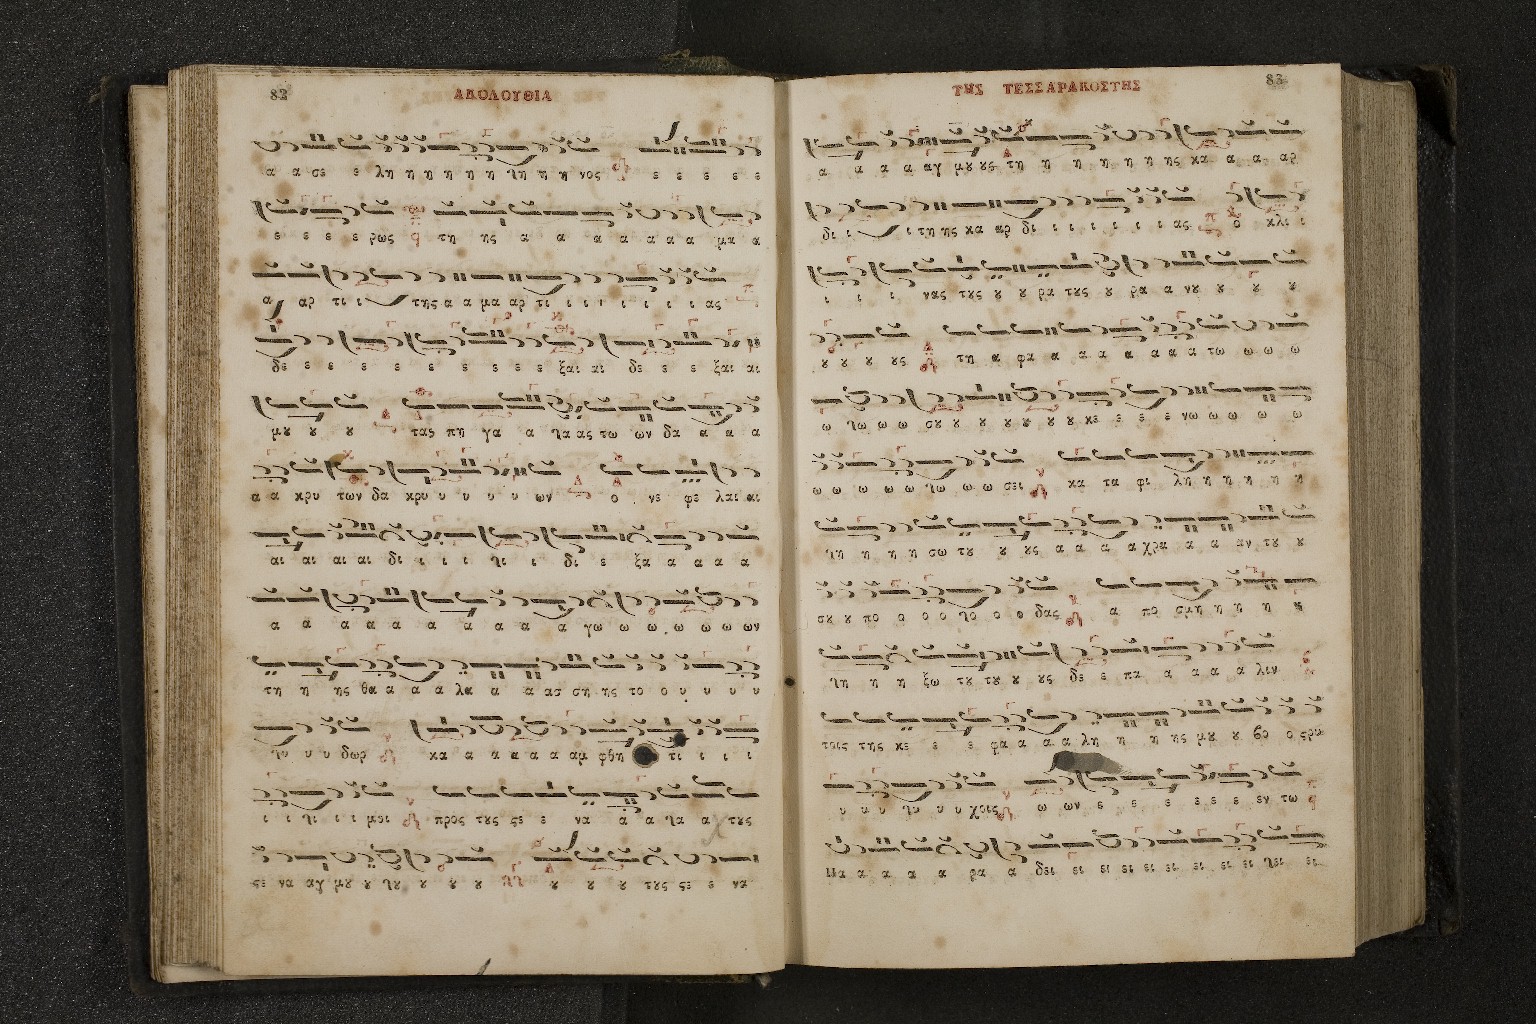 82
ΑΚΟΛΟΥΘΙΑ
α α σε ε λη η η η η η λη η η νος ε ε ε ε ε
ε ε ε ε ρως τη ης α α α α α α α μα α
α αρ τι ι της α α μα αρ τι ι ι ι ι ι ι ι ας
δε ε ε ε ε ε ε ε ε ε ξαι αι δε ε ε ξαι αι
μȣ ȣ ȣ τας πη γα α λα ας τω ων δα α α α
α α κρυ των δα κρυ υ υ υ υ ων ο νε φε λαι αι
αι αι αι αι δι ι ι ι λι ι δι ε ξα α α α α
α α α α α α α α α α γω ω ω ω ω ω ων
τη η ης θα α α α λα α α ασ ση ης το ο υ υ υ υ
λυ υ υ δωρ κα α α α α α αμ φθη τι ι ι ι
ι ι λι ι ι μεν προς τȣς ςε ε να α α λα α τȣς
ςε να αγ μȣ ȣ λȣ ȣ ȣ ȣ ȣ ȣ ȣ τȣς ςε ε να
ΤΗΣ ΤΕΣΣΑΡΑΚΟΣΤΗΣ
83
α α α α αγ μȣ ȣς τη η η η η η η ης κα α α αρ
δι ι ι τη ης κα αρ δι ι ι ι ι ι ι ι ας ο κλι ι
ι ι ι νας τȣς ȣ ȣ ρα τȣς ȣ ρα α νȣ ȣ ȣ ȣ
ȣ ȣ ȣ ȣς τη α φα α α α α α α α τω ω ω ω
ω λω ω ω σȣ ȣ ȣ ȣ ȣ ȣ ȣ ȣ κε ε ε ε νω ω ω ω ω
ω ω ω ω ω λω ω ω σει κα τα φι λη η η η η η
λη η η η σω τȣ ȣ ȣς α α α α χρα α α αν τȣ ȣ
σȣ ȣ πο ο ο ο λο ο ο δας α πο σμη η η η η
λη η η ξω τȣ τȣ ȣ ȣς δε ε πα α α α α λιν
τοις της κε ε ε φα α α α λη η η ης μȣ ȣ βο ο ςρυ
υ υ υ λυ υ υ χοις ω ων ε ε ε ε ε ε εν τω
Πα α α α α ρα α δει ει ει ει ει ει ει ει ει λει ει